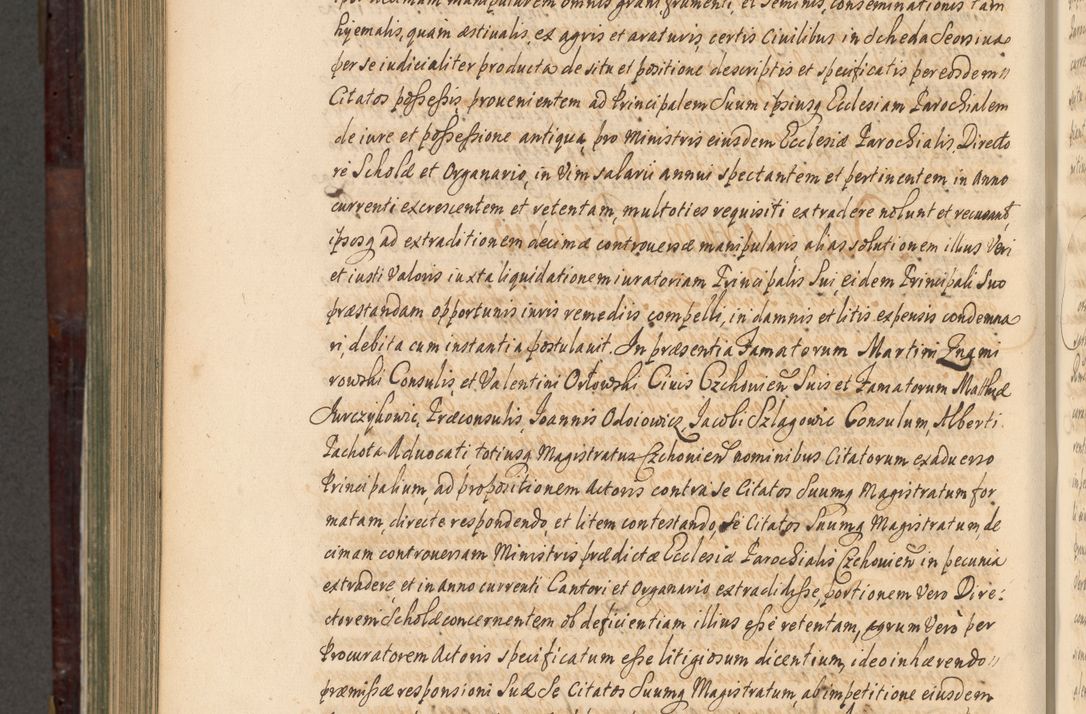 ipso decimam manipularem omnis grani frumenti, et seminis, conseminationis tam
hyemalis, quam æstivalis, ex agris et araturis, certis Civilibus in Scheda Seorsiva
per se iudicialiter producta de situ et positione descriptis et specificatis per eosdem
Citatos possessis, provenientem ad Principalem Suum ipsiusq Ecclesiam Parochialem
de iure et possessione antiqua, pro Ministris eiusdem Ecclesiæ Parochialis, Directo
re Scholæ et Organario, in Vim salarii annui spectantem et pertinentem in Anno
currenti excrescentem et retentam, multoties requisiti extradere nolunt et recusant
ipsosq ad extraditionem decimæ controversæ manipularis, alias solutionem illius Veri
et iusti Valoris iuxta liquidationem iuratoriam Principalis Sui, eidem Principali Suo
præstandam opportunis iuris remediis compelli, in damnis et litis expensis condemna
ri, debita cum instantia postulavit. In præsentia Famatorum Martini Znami
rowski Consulis, et Valentini Orłowski Civis Czchovien Suis et Famatorum Mathiæ
Jurczykowic, Præconsulis, Joannis Odoiowicz, Jacobi Szlagowic Consulum, Alberti
Pachota Advocati totiusq Magistratus Czchovien nominibus Citatorum ex adverso
Principalium, ad propositionem Actoris contra Se Citatos Suumq Magistratum for
matam, directe respondendo, et litem contestando, Se Citatos Suumq Magistratum, de
cimam controversam Ministris prædictæ Ecclesiæ Parochialis Czchovien in pecunia
extradere, et in anno currenti Cantori et Organario extradidisse, portionem Vero Dire:
ctorem Scholæ concernentem ob deficientiam illius esse retentam, agrum Vero per
Procuratorem Actoris specificatum esse litigiosum dicentium, ideo inhærendo
præmissæ responsioni Suæ Se Citatos Suumq Magistratum, ab impetitione eiusdem